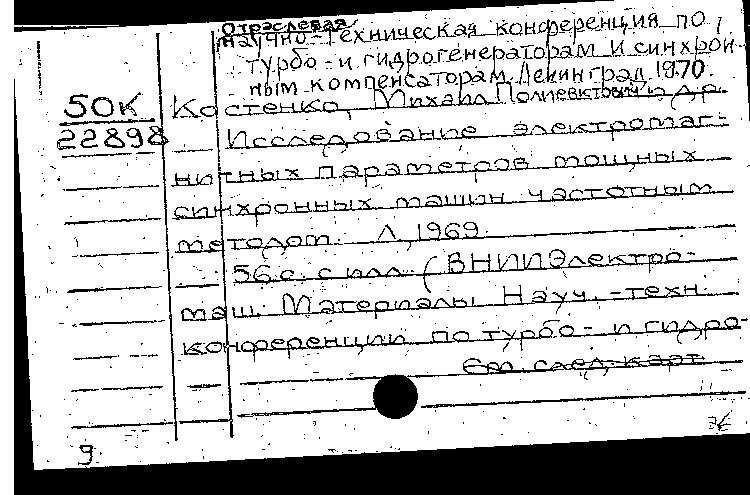 Отраслевая
научно-техническая конференция по
турбо- и гидрогенераторам и синхрон-
ным компенсаторам. Ленинград. 1970.
50К Костенко, Михаил Полиевктович и др.
22898 Исследование электромаг-
нитных параметров мощных
синхронных машин частотным
методом. Л., 1969.
56 с. с илл. (ВНИИЭлектро-
маш. Материалы Науч.-техн.
конференции по турбо- и гидро-
См. след. карт.
9